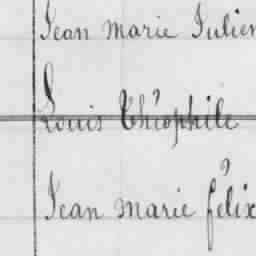 Jean Marie Julien
Louis Théophile
Jean Marie Félix